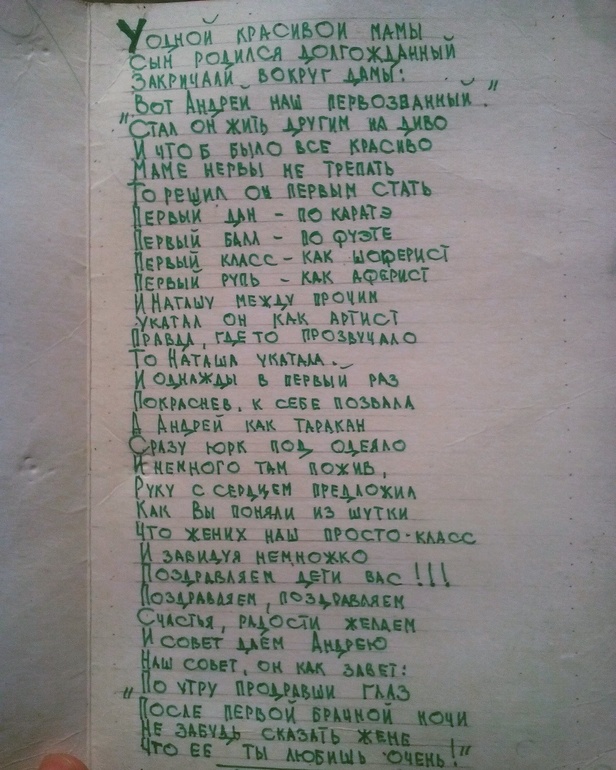 У одной красивой мамы
Сын родился долгожданный
Закричали вокруг дамы:
"Вот Андрей наш первозванный."
Стал он жить другим на диво
И что б было все красиво
Маме нервы не трепать
То решил он первым стать
Первый дан - по каратэ
Первый балл - по фуэте
Первый класс - как шоферист
Первый рупь - как аферист
И Наташу между прочим
Укатал он как артист
Правда, где то прозвучало
То Наташа укатала.
И однажды в первый раз
Покраснев, к себе позвала
А Андрей как таракан
Сразу юрк под одеяло
И немного там пожив,
Руку с сердцем предложил
Как Вы поняли из шутки
Что жених наш просто-класс
И завидуя немножко
Поздравляем дети вас!!!
Поздравляем, поздравляем
Счастья, радости желаем
И совет даём Андрею
Наш совет, он как завет:
"По утру продравши глаз
После первой брачной ночи
Не забудь сказать жене
Что ее ты любишь очень!"